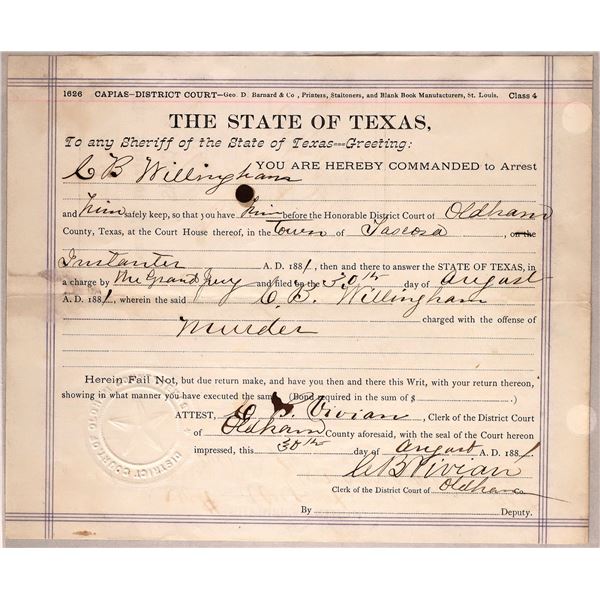 1626 CAPIAS—DISTRICT COURT—Geo. D. Barnard & Co., Printers, Staitoners, and Blank Book Manufacturers, St. Louis. Class 4
THE STATE OF TEXAS,
To any Sheriff of the State of Texas---Greeting:
YOU ARE HEREBY COMMANDED to Arrest
C B Willingham
and him safely keep, so that you have him before the Honorable District Court of Oldham
County, Texas, at the Court House thereof, in the town of Tascosa, on the
Instanter A. D. 1881, then and there to answer the STATE OF TEXAS, in
a charge by the Grand Jury and filed on the 30th day of August
A. D. 1881, wherein the said C. B. Willingham
charged with the offense of
Murder
Herein Fail Not, but due return make, and have you then and there this Writ, with your return thereon,
showing in what manner you have executed the same. (Bond required in the sum of $ .)
ATTEST, C B. Vivian, Clerk of the District Court
of Oldham County aforesaid, with the seal of the Court hereon
impressed, this 30th day of August A. D. 1881
C B Vivian
Clerk of the District Court of Oldham Co
By Deputy.
DISTRICT COURT